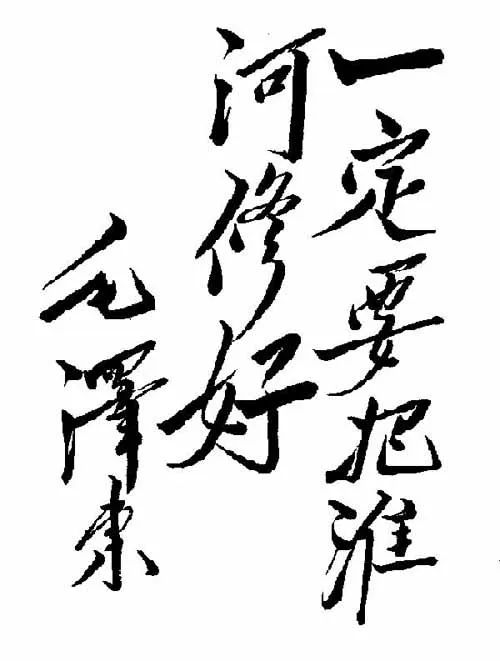 一定要把淮
河修好
毛澤東